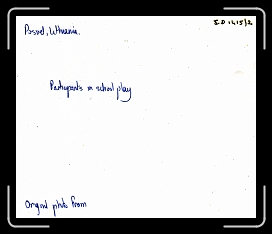 I.D 1415/2
Posvol, Lithuania.
Participants in school play
Original photo from